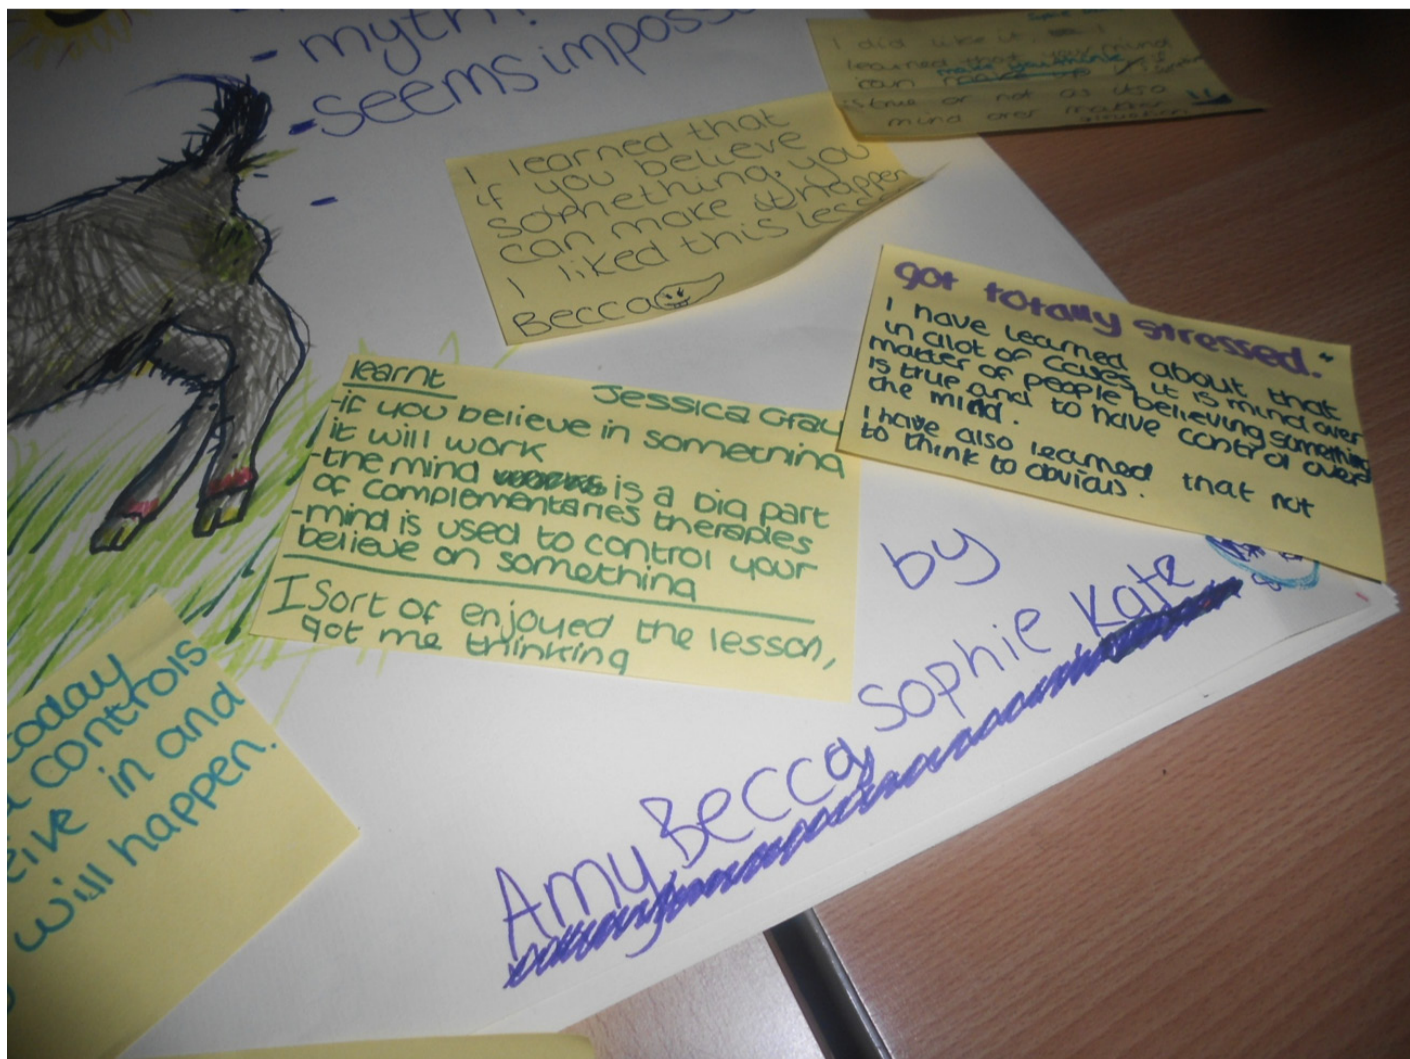 - myth?
- seems imposs
-
I did like it I
learned that your mind
can make you think
is true or not as its a
mind over matter
I learned that
if you believe
something, you
can make it happen
I liked this less
Becca
got totally stressed."
I have learned about that
in alot of cases, it is mind over
matter of people believing something
is true and to have control over
the mind.
I have also learned that not
to think to obvious.
learnt Jessica Gray
-if you believe in something
it will work
-the mind is a big part
of complementaries therapies
-mind is used to control your
believe on something
I sort of enjoyed the lesson,
got me thinking
today
controls
eive in and
will happen.
by
Amy, Becca, Sophie Kate